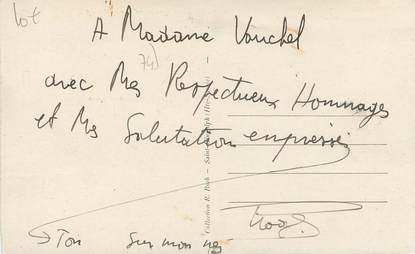 lot
A Madame Vauchel
74)
avec Mes Respectueux Hommages
et Mes Salutation empressé
Collection R. Roth — Saint-
→ Ton Sur mon nez